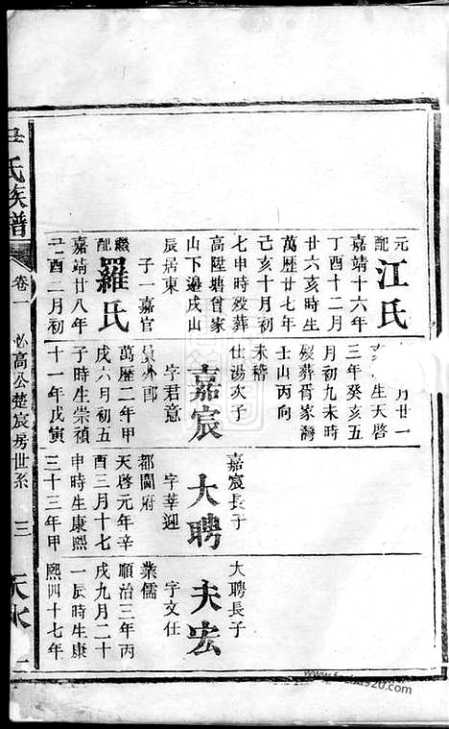 元配江氏
嘉靖十六年
丁酉十二月
廿六亥時生
萬歷廿七年
己亥十月初
七申時歿葬
高陞塆曾家
山下邊戌山
辰居東
子一嘉官
繼配羅氏
嘉靖廿八年
酉二月初
月廿一
生天啓
三年癸亥五
月初九未時
歿葬胥家灣
士山丙向
未稽
仕湯次子
嘉宸
字君意
外郎
萬歷二年甲
戌六月初五
子時生崇禎
十一年戊寅
嘉宸長子
大聘
字莘迎
都閫府
天啓元年辛
酉三月十七
申時生康熙
三十三年甲
大聘長子
夫宏
字文任
業儒
順治三年丙
戌九月二十
一辰時生康
熙四十七年
氏族譜
卷一
高公楚宸房世系
三
天水